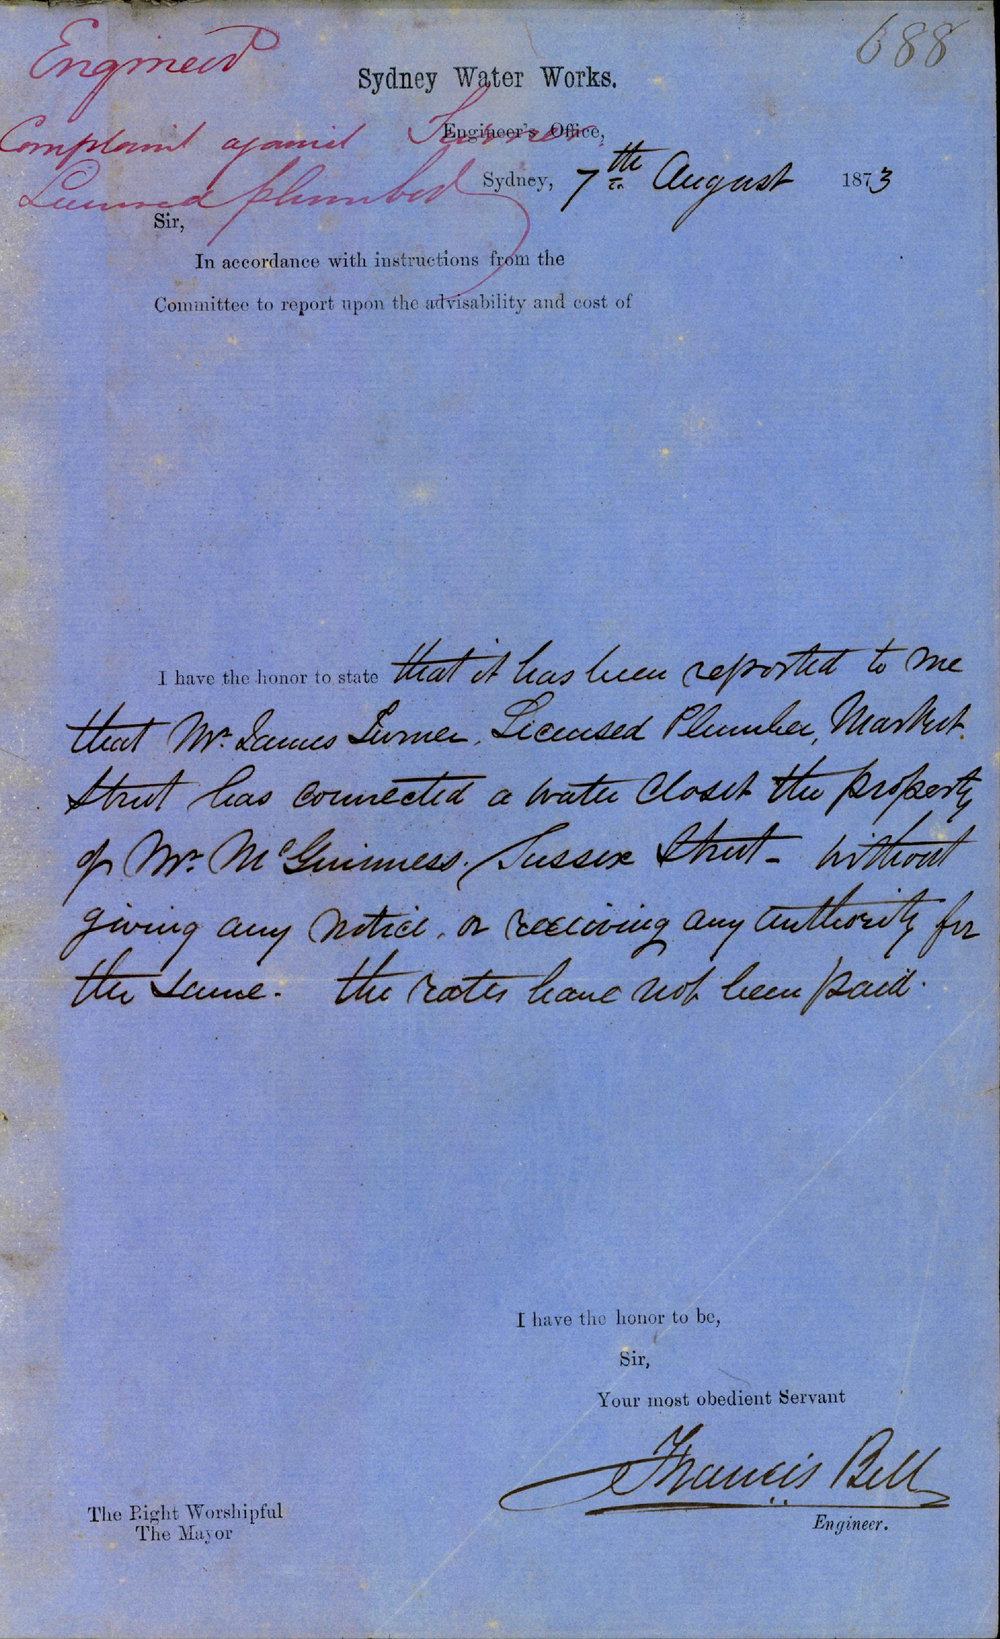 688
Engineer
Sydney Water Works.
Complaint against Turner
Engineer's Office,
Licensed plumber
Sydney, 7th August 1873
Sir,
In accordance with instructions from the
Committee to report upon the advisability and cost of
I have the honor to state that it has been reported to me
that Mr. James Turner, Licensed Plumber, Market
Street has connected a water closet the property
of Mr. McGuinness. Sussex Street - without
giving any notice, or receiving any authority for
the same. the rates have not been paid.
I have the honor to be,
Sir,
Your most obedient Servant
Francis Bell
Engineer.
The Right Worshipful
The Mayor